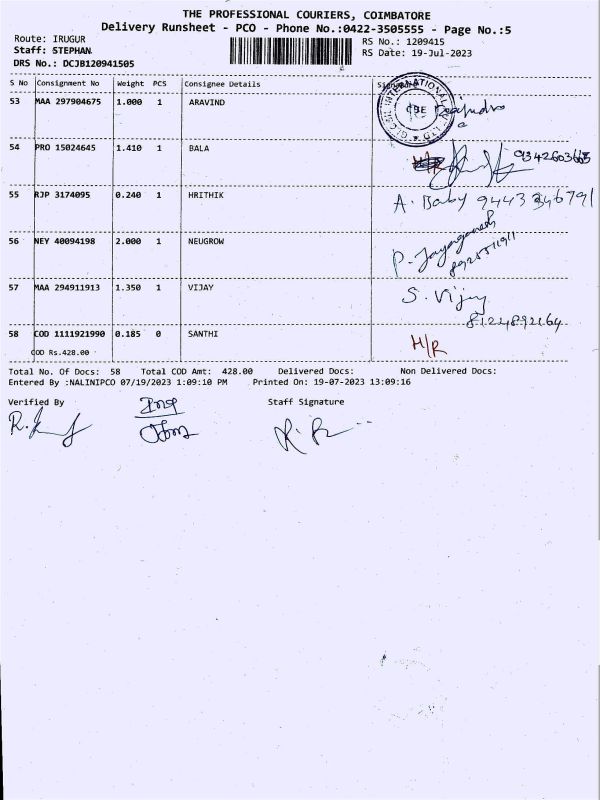 THE PROFESSIONAL COURIERS, COIMBATORE
Delivery Runsheet - PCO - Phone No.:0422-3505555 - Page No.:5
Route: IRUGUR
Staff: STEPHAN
DRS No.: DCJB120941505
RS No.: 1209415
RS Date: 19-Jul-2023
S No Consignment No Weight PCS Consignee Details
53 MAA 297904675 1.000 1 ARAVIND
CBE
54 PRO 15024645 1.410 1 BALA
9342603663
55 RJP 3174095 0.240 1 HRITHIK A. Baby 9443346791
56 NEY 40094198 2.000 1 NEUGROW P. Jayaganesh
57 MAA 294911913 1.350 1 VIJAY S. Vijay
8124892164
58 COD 1111921990 0.185 0 SANTHI H/R
COD Rs.428.00
Total No. Of Docs: 58 Total COD Amt: 428.00 Delivered Docs: Non Delivered Docs:
Entered By :NALINIPCO 07/19/2023 1:09:10 PM Printed On: 19-07-2023 13:09:16
Verified By Staff Signature